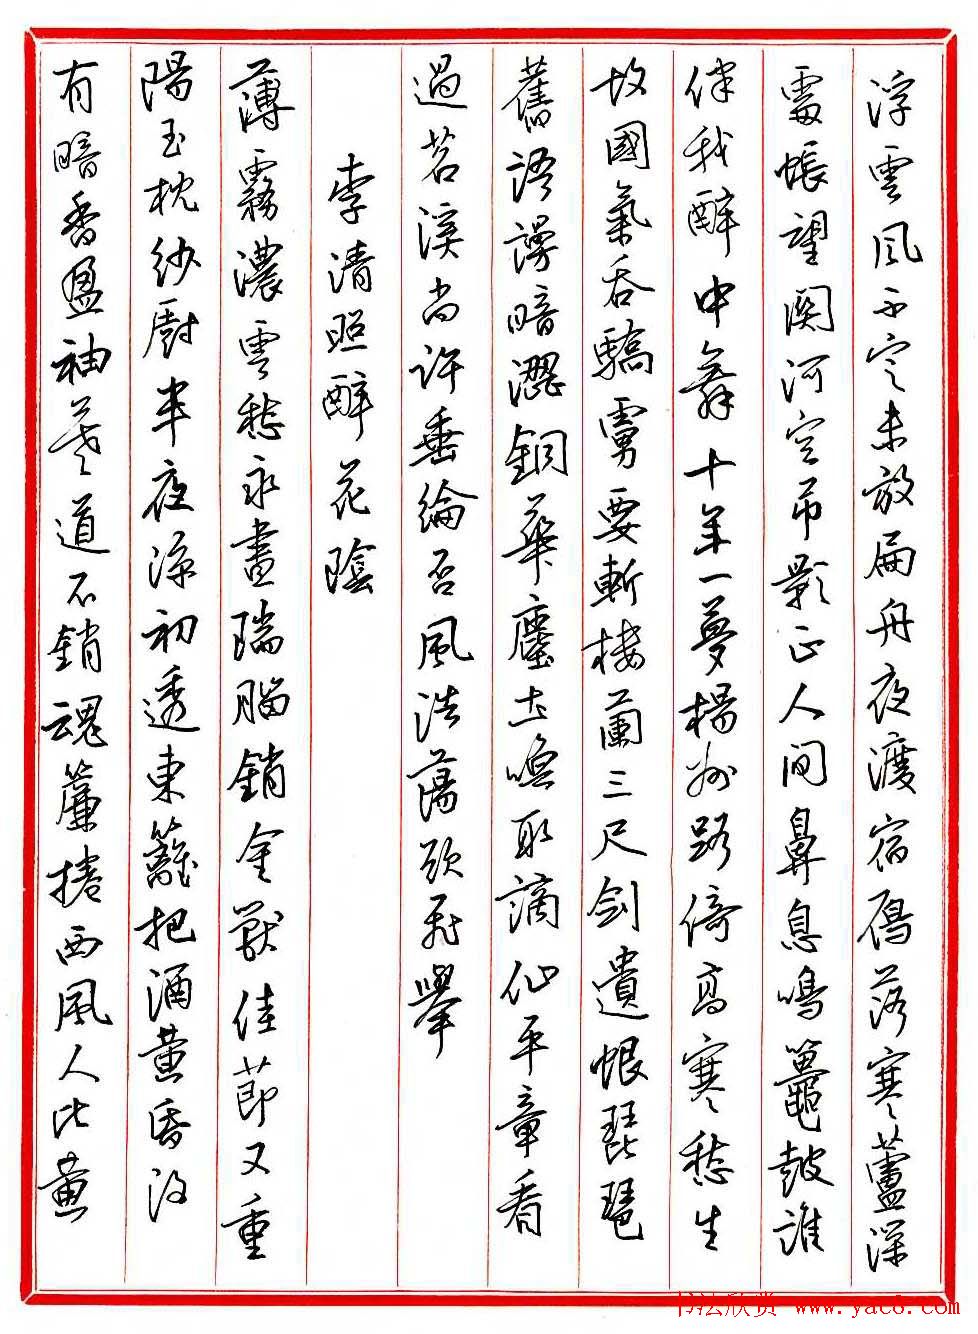 浮雲風不定未放扁舟夜渡宿鴈落寒蘆深
處悵望關河空吊影正人間鼻息鳴鼉鼓誰
伴我醉中舞十年一夢楊州路倚高寒愁生
故國氣吞驕虜要斬樓蘭三尺劍遺恨琵琶
舊語謾暗澀銅華塵土喚取謫仙平章看
過苕溪尚許垂綸否風浩蕩欲飛舉
李清照醉花陰
薄霧濃雲愁永晝瑞腦銷金獸佳節又重
陽玉枕紗廚半夜涼初透東籬把酒黃昏後
有暗香盈袖莫道不銷魂簾捲西風人比黃
书法欣赏 www.yac8.com